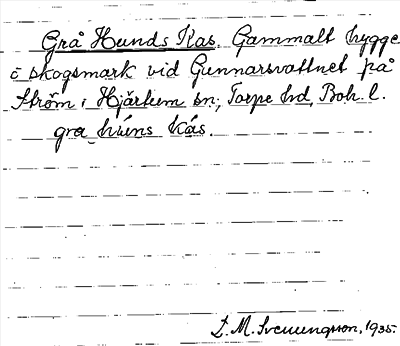 Grå Hunds Kas. Gammalt bygge
i skogsmark vid Gunnarsvattnet på
Ström i Hjärtum sn; Torpe hd, Boh. l.
gra húns kás.
T. M. Svenungsson, 1935.